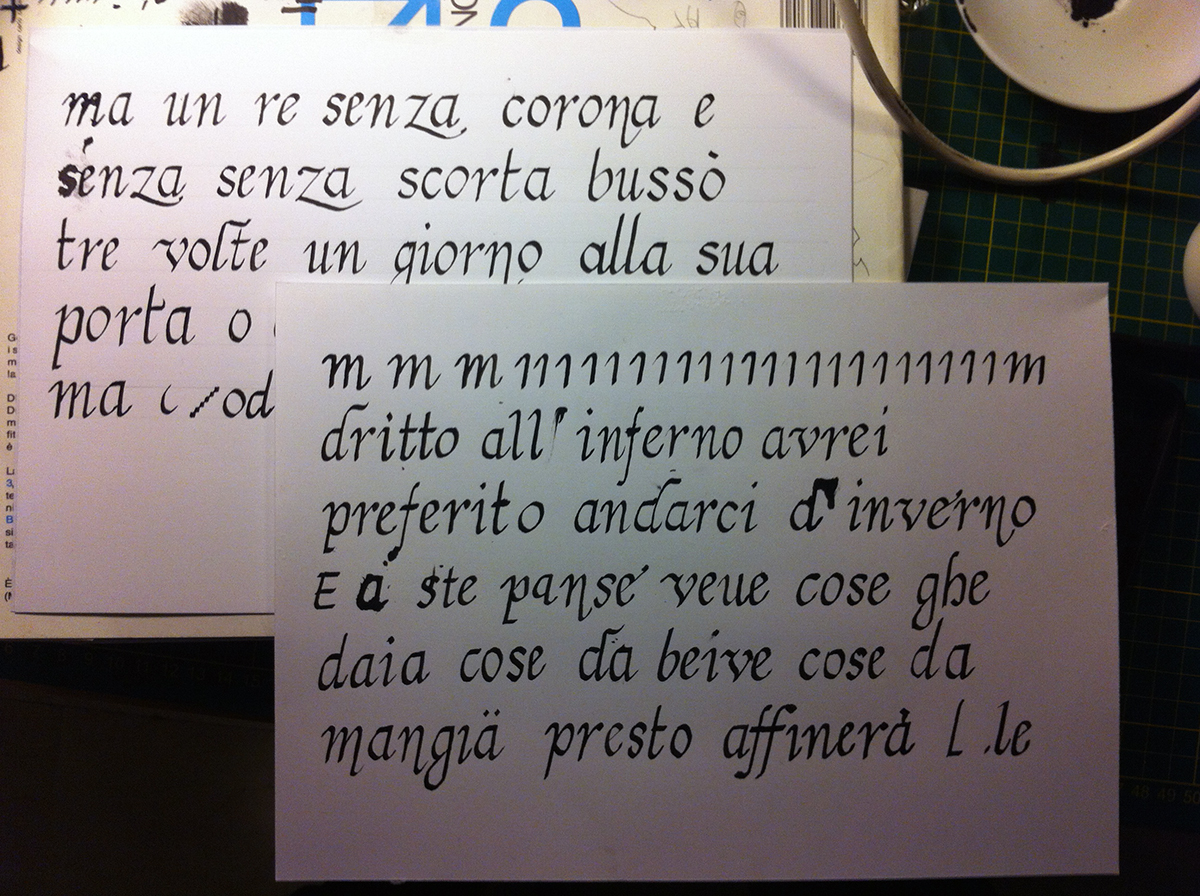 ma un re senza corona e
senza senza scorta bussò
tre volte un giorno alla sua
porta o
ma
m m m 111111111111111111111111 m
dritto all' inferno avrei
preferito andarci d' inverno
E a ste panse veue cose ghe
daia cose da beive cose da
mangiä presto affinerà l .le